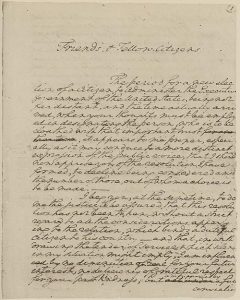 Friends, & Fellow-Citizens
The period for a new elec-
tion of a Citizen, to administer the Executive
government of the United States, being not
far distant, and the time actually arri-
ved, when your thoughts must be employ-
ed in designating the person, who is to be
cloathed with that important trust
it appears to me proper, especi-
ally as it may conduce to a more distinct
expression of the public voice, that I should
now apprise you of the resolution I have
formed, to decline being considered among
the number of those, out of whom a choice is
to be made.
I beg you, at the same time, to do
me the justice to be assured, that this resolu-
tion has not been taken, without a strict
regard to all the considerations appertain-
ing to the relation, which binds a dutiful
citizen to his country — and that, in with
drawing the tender of service which silence
in my situation might imply, I am influen
ced by no diminution of zeal for your future
interest, no deficiency of grateful respect
for your past kindness, but